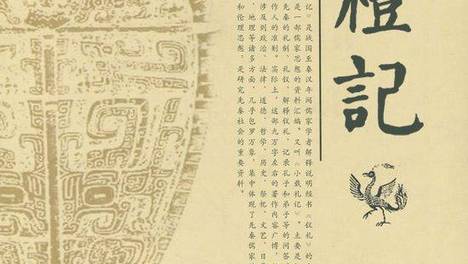 禮記
记》是战国至秦汉年间儒家学者解释说明经书《仪礼》的
是一部儒家思想的资料汇编。又叫《小戴礼记》。主要是
先秦的礼制、礼仪，解释仪礼，记录孔子和弟子等的问答
作人的准则。实际上，这部九万字左右的著作内容广博，
涉及到政治、法律、道德、哲学、历史、祭祀、文艺、日
、地理等诸多方面，几乎包罗万象，集中体现了先秦儒家
和伦理思想，是研究先秦社会的重要资料。